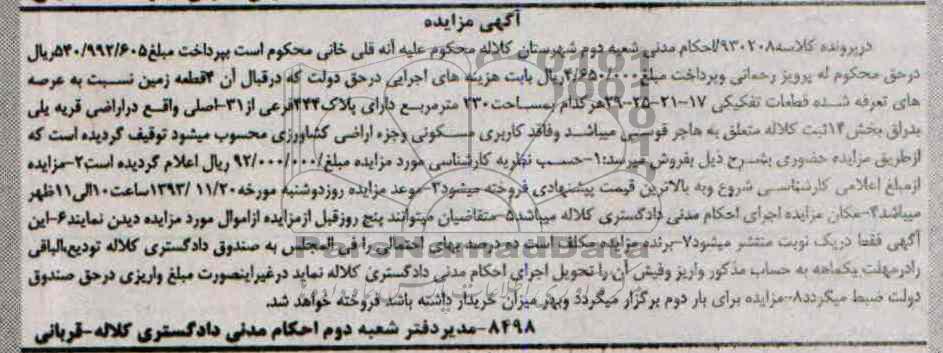 آگهی مزایده
درپرونده کلاسه۹۳۰۲۰۸/احکام مدنی شعبه دوم شهرستان کلاله محکوم علیه آنه قلی خانی محکوم است بپرداخت مبلغ۵۴۰/۹۹۲/۶۰۵ریال
درحق محکوم له پرویز رحمانی وپرداخت مبلغ۴/۶۵۰/۰۰۰ریال بابت هزینه های اجرایی درحق دولت که درقبال آن ۴قطعه زمین نسبت به عرصه
های تعرفه شده قطعات تفکیکی ۱۷-۲۱-۲۵-۲۹هرکدام بمساحت۲۳۰ مترمربع دارای پلاک۴۴۴فرعی از۳۱-اصلی واقع دراراضی قریه یلی
بدراق بخش۱۴ثبت کلاله متعلق به هاجر قوسی میباشد وفاقد کاربری مسکونی وجزء اراضی کشاورزی محسوب میشود توقیف گردیده است که
ازطریق مزایده حضوری بشرح ذیل بفروش میرسد:۱-حسب نظریه کارشناسی مورد مزایده مبلغ۹۲/۰۰۰/۰۰۰/ ریال اعلام گردیده است۲-مزایده
ازمبلغ اعلامی کارشناسی شروع وبه بالاترین قیمت پیشنهادی فروخته میشود۳-موعد مزایده روزدوشنبه مورخه۱۳۹۳/۱۱/۲۰ساعت۱۰الی۱۱ظهر
میباشد۴-مکان مزایده اجرای احکام مدنی دادگستری کلاله میباشد۵-متقاضیان میتوانند پنج روزقبل ازمزایده ازاموال مورد مزایده دیدن نمایند۶-این
آگهی فقط دریک نوبت منتشر میشود۷-برنده مزایده مکلف است ده درصد بهای احتمالی را فی المجلس به صندوق دادگستری کلاله تودیع،الباقی
رادرمهلت یکماهه به حساب مذکور واریز وفیش آن را تحویل اجرای احکام مدنی دادگستری کلاله نماید درغیراینصورت مبلغ واریزی درحق صندوق
دولت ضبط میگردد۸-مزایده برای بار دوم برگزار میگردد وبهر میزان خریدار داشته باشد فروخته خواهد شد.
۸۴۹۸-مدیردفتر شعبه دوم احکام مدنی دادگستری کلاله-قربانی
ParsNamadData